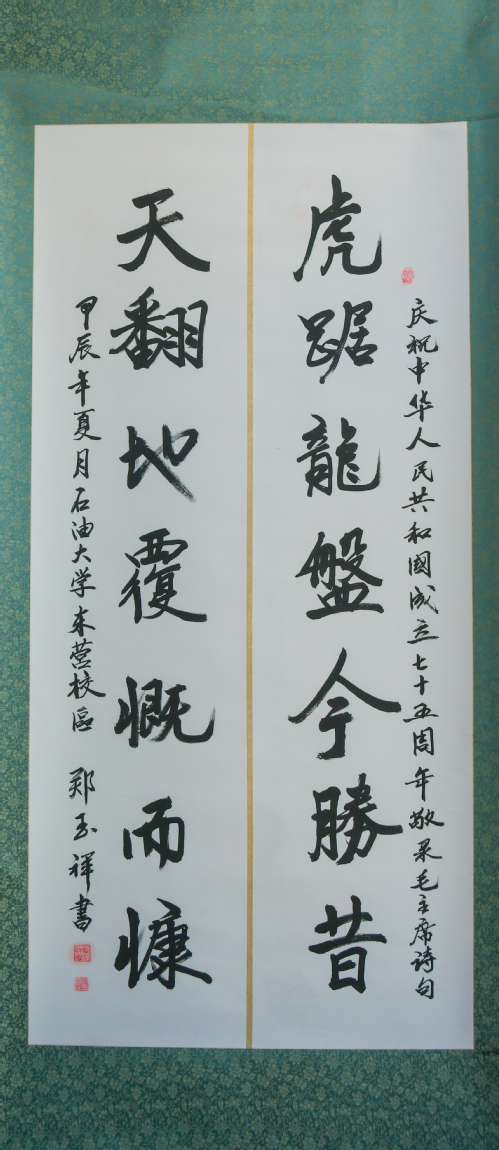 庆祝中华人民共和國成立七十五周年敬录毛主席诗句
虎踞龍盤今勝昔
天翻地覆慨而慷
甲辰年夏月石油大学东营校區 郑玉祥書